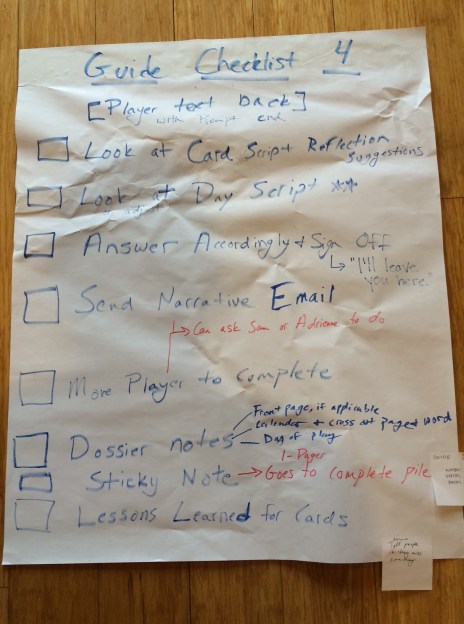 Guide Checklist 4
[Player text back]
with Prompt end
Look at Card Script Reflection
Suggestions
Look at Day Script **
Answer Accordingly + Sign Off
↳ "I'll leave
you here."
Send Narrative Email
↳ Can ask Sam or Adrienne to do
More Player to Complete
Front page, if applicable
Calendar + cross out page + word
Dossier notes – Day of Play
1-Pager
Sticky Note → Goes to complete pile
Lessons Learned for Cards
Tell people